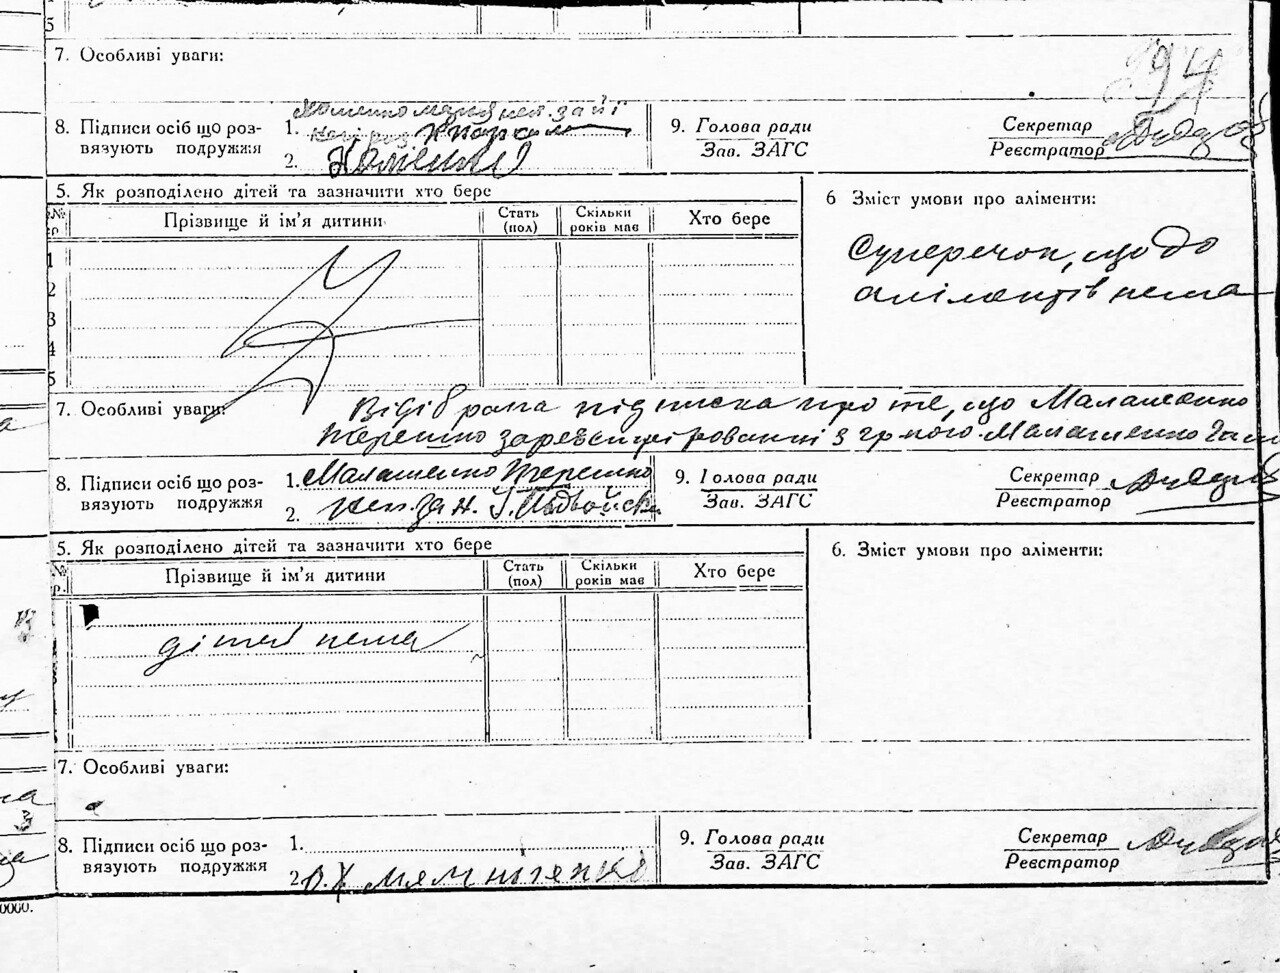 5
7. Особливі уваги:
94
8. Підписи осіб що роз-
вязують подружжя
1.
2.
9. Голова ради
Зав. ЗАГС
Секретар
Реєстратор
5. Як розподілено дітей та зазначити хто бере
Прізвище й ім'я дитини
Стать
(пол)
Скільки
років має
Хто бере
1
2
3
4
5
6 Зміст умови про аліменти:
Суперечок, що до
аліментів нема
7. Особливі уваги:
Відібрана підписка про те, що Малашенко
8. Підписи осіб що роз-
вязують подружжя
1. Малашенко
2.
9. Голова ради
Зав. ЗАГС
Секретар
Реєстратор
5. Як розподілено дітей та зазначити хто бере
Прізвище й ім'я дитини
Стать
(пол)
Скільки
років має
Хто бере
дітей нема
6. Зміст умови про аліменти:
7. Особливі уваги:
8. Підписи осіб що роз-
вязують подружжя
1.
2.
9. Голова ради
Зав. ЗАГС
Секретар
Реєстратор
0000.